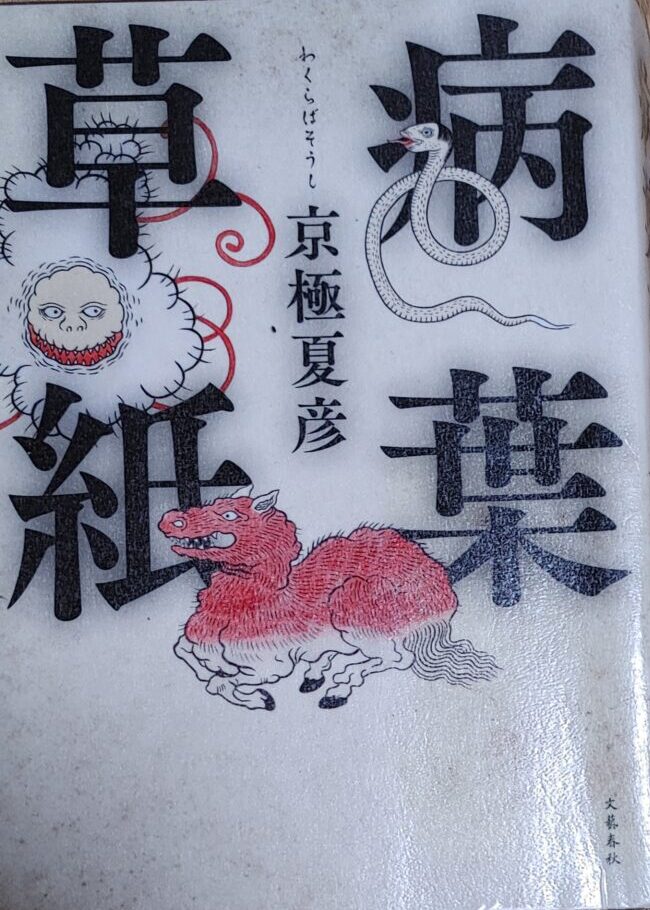 病葉
草紙
わくらばそうし
京極夏彦
文藝春秋